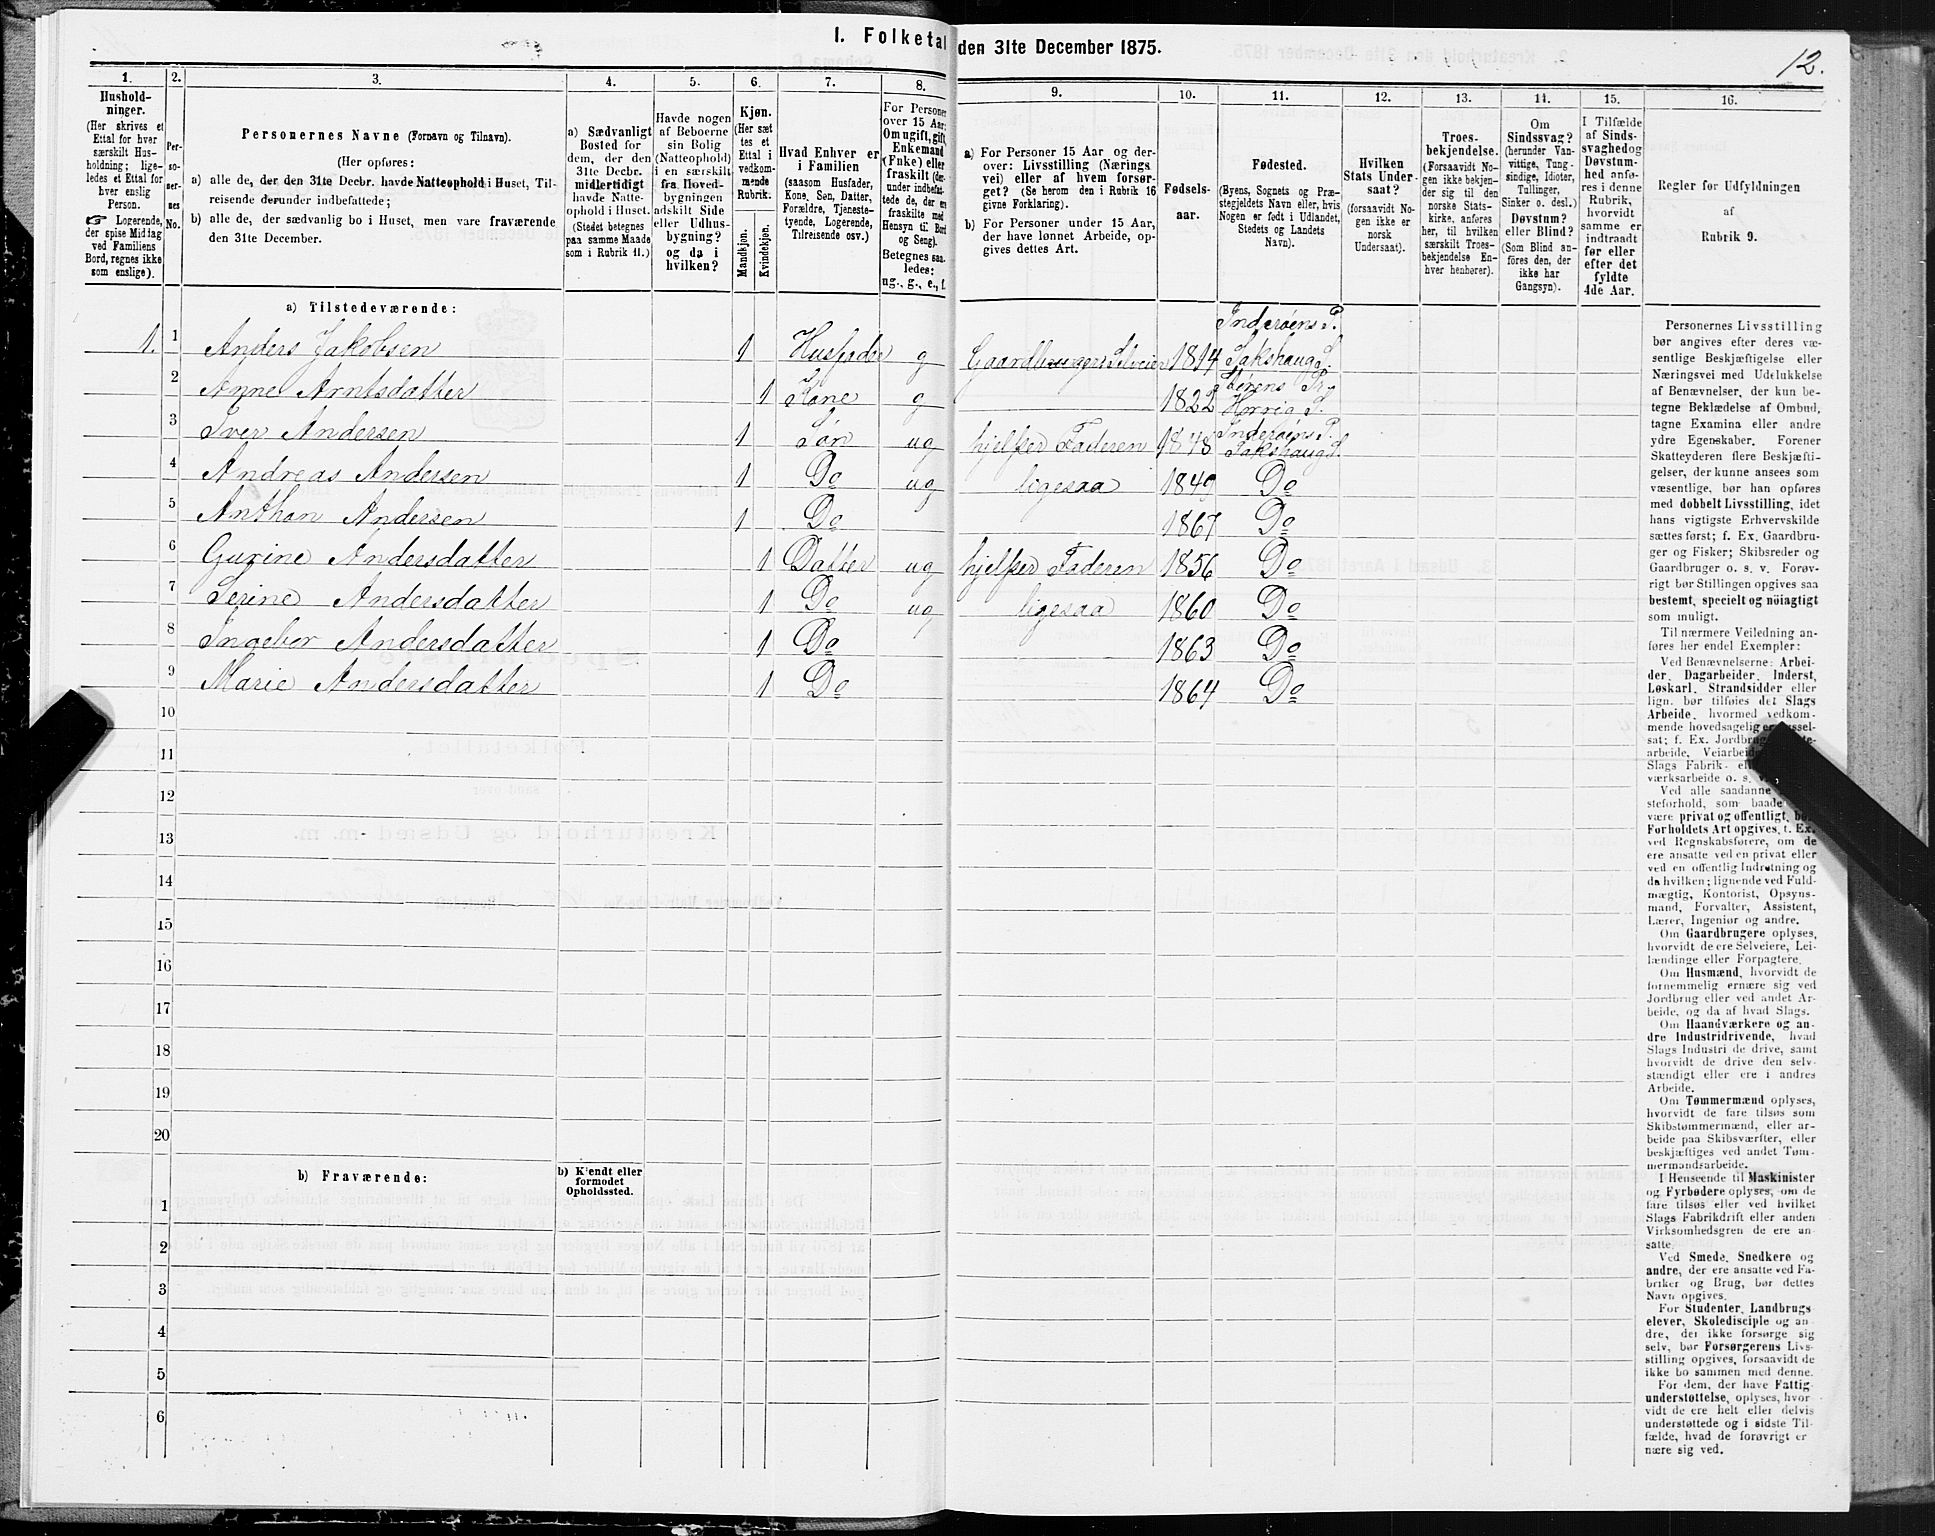 I. Folketal den 31te December 1875.
12.
1.
2.
3.
4.
5.
6.
7.
8.
9.
10.
11.
12.
13.
14.
15.
16.
Hushold-
ninger.
(Her skrives et
Ettal for hver
særskilt Hus-
holdning; lige-
ledes et Ettal for
hver enslig
Person.
☞ Logerende,
der spise Middag
ved Familiens
Bord, regnes ikke
som enslige).
Per-
so-
ner-
nes
No.
Personernes Navne (Fornavn og Tilnavn).
(Her opføres:
a) alle de, der den 31te Decbr. havde Natteophold i Huset, Til-
reisende derunder indbefattede;
b) alle de, der sædvanlig bo i Huset, men vare fraværende
den 31te December.
a) Sædvanligt
Bosted for
dem, der den
31te Decbr.
midlertidigt
havde Natte-
ophold i Huset.
(Stedet betegnes
paa samme Maade
som i Rubrik 11.)
Havde nogen
af Beboerne
sin Bolig
(Natteophold)
i en særskilt
fra Hoved-
bygningen
adskilt Side
eller Udhus-
bygning?
og da i
hvilken?
Kjøn.
(Her sæt-
tes et
Ettal i
vedkom-
mende
Rubrik.
Mandkjøn.
Kvindekjøn.
Hvad Enhver er
i Familien
(saasom Husfader,
Kone, Søn, Datter,
Forældre, Tjeneste-
tyende, Logerende,
Tilreisende osv.)
For Personer
over 15 Aar:
Om ugift, gift,
Enkemand
(Enke) eller
fraskilt (der-
under indbefat-
tede de, der ere
fraskilte med
Hensyn til Bord
og Seng).
Betegnes saa-
ledes:
ug., g., e., f.
a) For Personer 15 Aar og der-
over: Livsstilling (Nærings
vei) eller af hvem forsør-
get? (Se herom den i Rubrik 16
givne Forklaring).
b) For Personer under 15 Aar,
der have lønnet Arbeide, op-
gives dettes Art.
Fødsels-
aar.
Fødested.
(Byens, Sognets og Præ-
stegjeldets Navn eller, hvis
Nogen er født i Udlandet,
Stedets og Landets
Navn).
Hvilken
Stats Under-
saat?
(forsaavidt No-
gen ikke er
norsk
Undersaat).
Troes-
bekjendelse.
(Forsaavidt No-
gen ikke bekjen-
der sig til den
norske Stats-
kirke, anføres
her, til hvilken
særskilt Troes-
bekjendelse En-
hver henhører).
Om
Sindssvag?
(herunder Van-
vittige, Tung-
sindige, Idioter,
Tullinger,
Sinker o. desl.)
Døvstum?
eller Blind?
(Som Blind an-
føres den, der
ikke har
Gangsyn).
I Tilfælde
af Sinds-
svaghed og
Døvstum-
hed anfø-
res i denne
Rubrik,
hvorvidt
samme er
indtraadt
før eller
efter det
fyldte
4de Aar.
Regler for Udfyldningen
af
Rubrik 9.
a) Tilstedeværende:
1. 1 Anders Jakobsen 1 Husfader g Gaardbruger Selveier 1814 Inderøens P. Sakshaug S.
2 Anne Arntsdatter 1 Kone g 1822 Størens Pr. Horrig S.
3 Iver Andersen 1 Søn ug hjelper Faderen 1848 Inderøens P. Sakshaug S.
4 Andreas Andersen 1 Do ug ligesaa 1849 Do
5 Anthon Andersen 1 Do 1867 Do
6 Gurine Andersdatter 1 Datter ug hjelper Faderen 1856 Do
7 Serine Andersdatter 1 Do ug ligesaa 1860 Do
8 Ingebor Andersdatter 1 Do 1863 Do
9 Marie Andersdatter 1 Do 1864 Do
10
11
12
13
14
15
16
17
18
19
20
b) Fraværende:
b) Kjendt eller
formodet
Opholdssted.
1
2
3
4
5
6
Personernes Livsstilling
bør angives efter deres væ-
sentlige Beskjæftigelse eller
Næringsvei med Udelukkelse
af Benævnelser, der kun be-
tegne Beklædelse af Ombud,
tagne Examina eller andre
ydre Egenskaber. Forener
Skatteyderen flere Beskjæfti-
gelser, der kunne ansees som
væsentlige, bør han opføres
med dobbelt Livsstilling, idet
hans vigtigste Erhvervskilde
sættes først; f. Ex. Gaardbru-
ger og Fisker; Skibsreder og
Gaardbruger o. s. v. Forøv-
rigt bør Stillingen opgives saa
bestemt, specielt og nöiagtigt
som muligt.
Til nærmere Veiledning an-
føres her endel Exempler:
Ved Benævnelserne: Arbei-
der, Dagarbeider, Inderst,
Løskarl, Strandsidder eller
lign. bør tilføies det Slags
Arbeide, hvormed vedkom-
mende hovedsagelig er
sat; f. Ex.
arbeide,
Slags Fabrik-
værksarbeide o. s. v.
Ved alle saadanne
steforhold, som baade
være privat og offentligt, bør
Forholdets Art opgives, t. Ex.
ved Regnskabsførere, om de
ere ansatte ved en privat eller
ved en offentlig Indretning og
da hvilken; lignende ved Fuld-
mægtig, Kontorist, Opsyns-
mand, Forvalter, Assistent,
Lærer, Ingeniør og andre.
Om Gaardbrugere oplyses,
hvorvidt de ere Selveiere, Lei-
lændinge eller Forpagtere.
Om Husmænd, hvorvidt de
fornemmelig ernære sig ved
Jordbrug eller ved andet Ar-
beide, og da af hvad Slags.
Om Haandværkere og an-
dre Industridrivende, hvad
Slags Industri de drive, samt
hvorvidt de drive den selv-
stændigt eller ere i andres
Arbeide.
Om Tømmermænd oplyses,
hvorvidt de fare tilsøs som
Skibstømmermænd, eller ar-
beide paa Skibsværfter, eller
beskjæftiges ved andet Tøm-
mermandsarbeide.
I Henseende til Maskinister
og Fyrbødere oplyses, om de
fare tilsøs eller ved hvilket
Slags Fabrikdrift eller anden
Virksomhedsgren de ere an-
satte.
Ved Smede, Snedkere og
andre, der ere ansatte ved Fa-
briker og Brug, bør dettes
Navn opgives.
For Studenter, Landbrugs-
elever, Skoledisciple og an-
dre, der ikke forsørge sig
selv, bør Forsørgerens Livs-
stilling opgives, forsaavidt de
ikke bo sammen med denne.
For dem, der have Fattig-
understøttelse, oplyses, hvor-
vidt de ere helt eller delvis
understøttede og i sidste Til-
fælde, hvad de forøvrigt er-
nære sig ved.